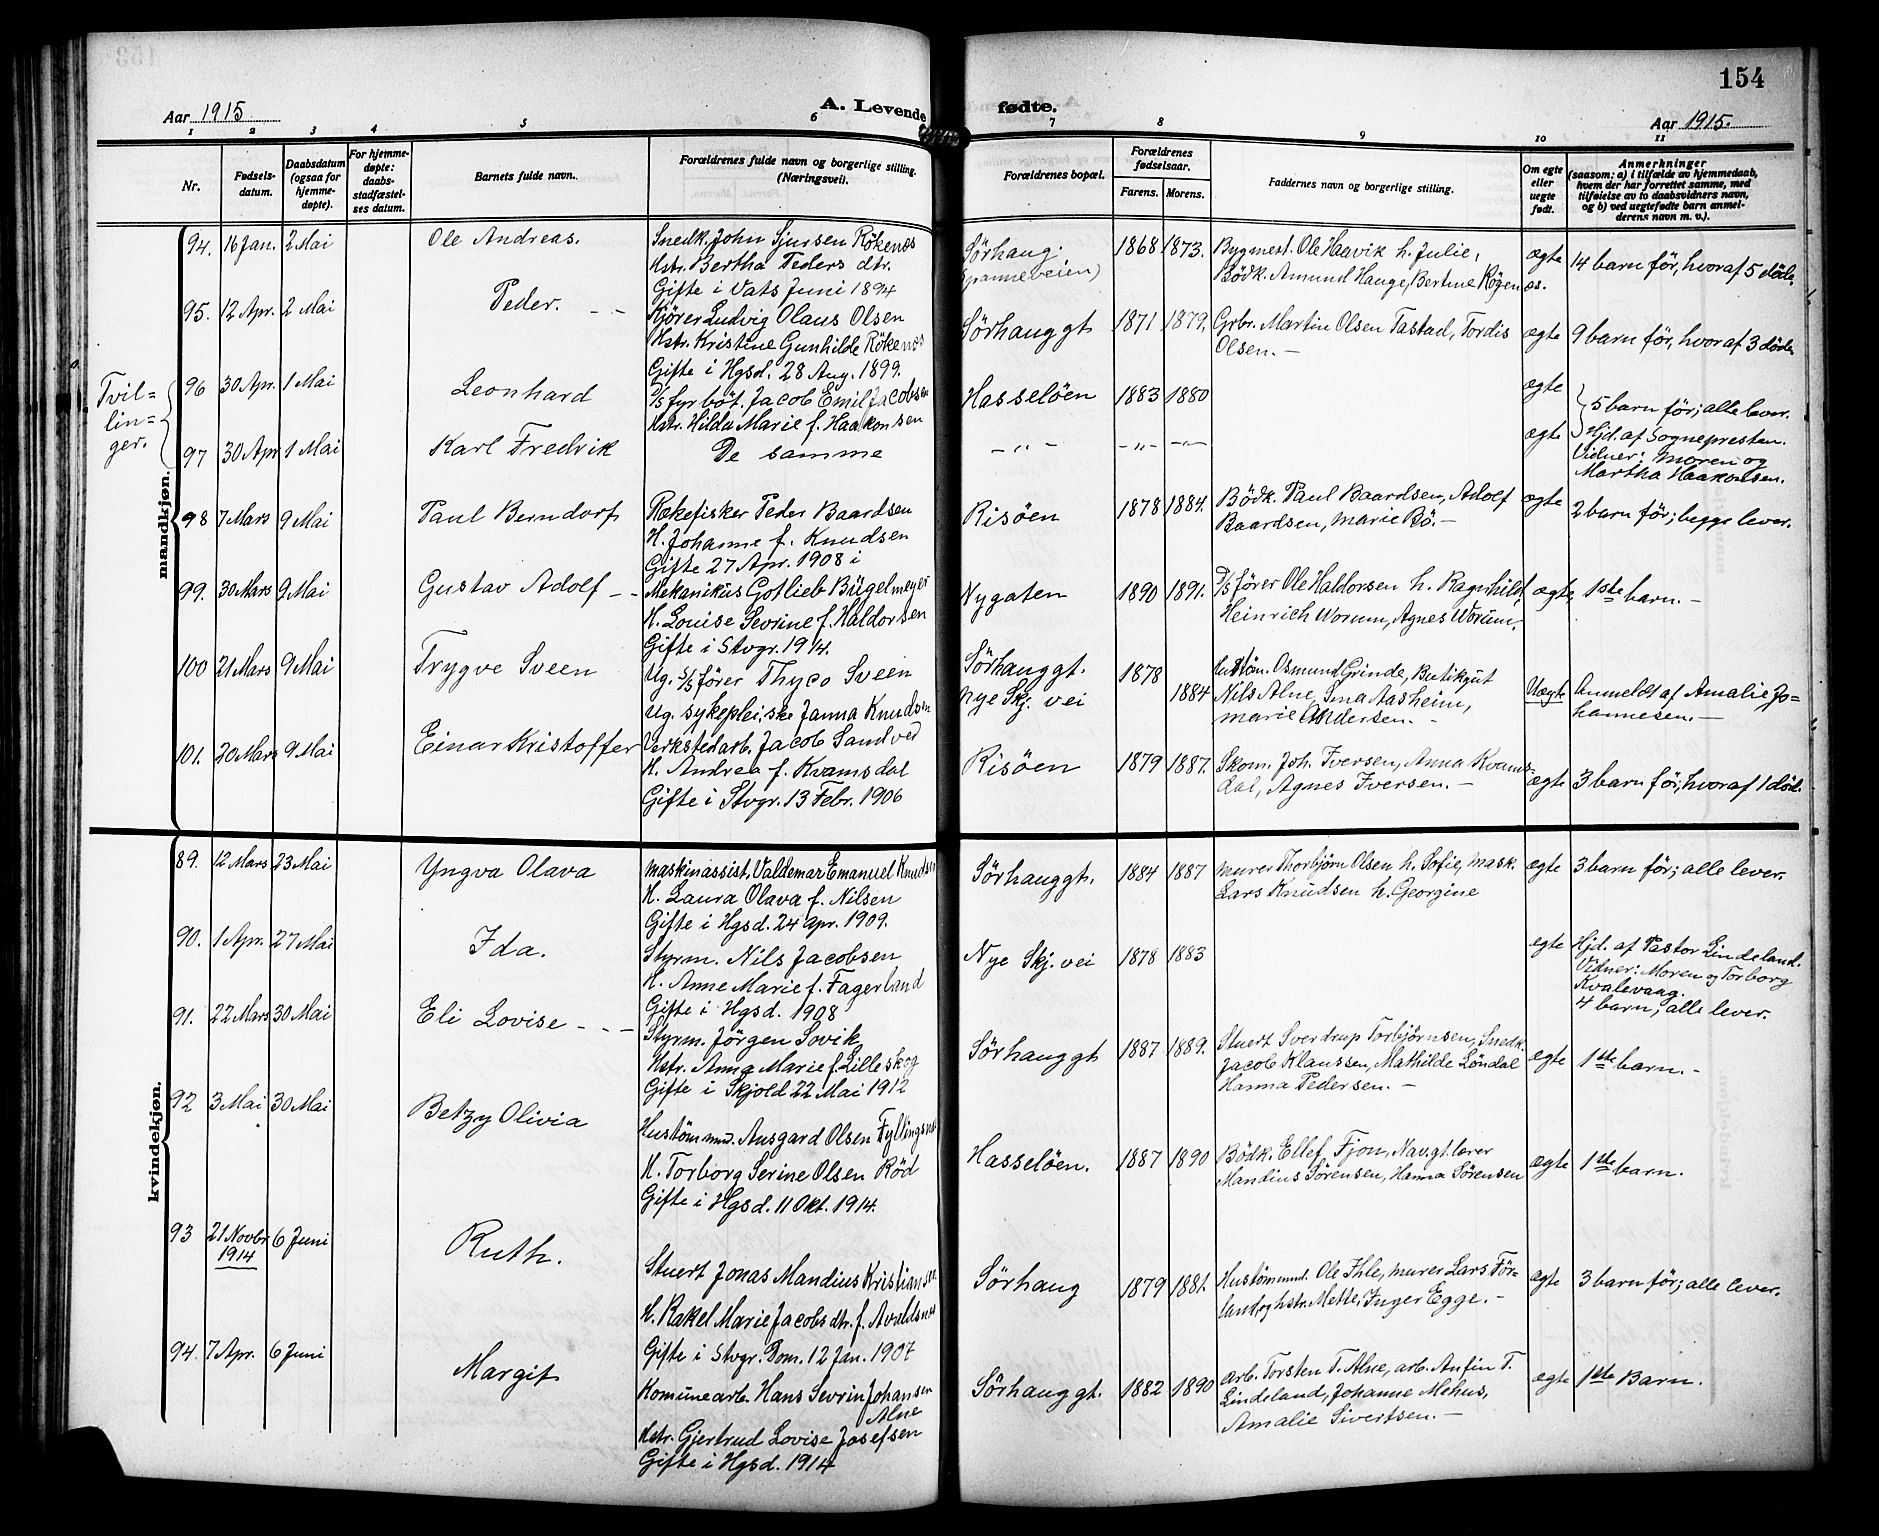 154
Aar 1915
A. Levende
fødte.
Aar 1915.
1 2 3 4 5 6 7 8 9 10 11
Nr.
Fødsels-
datum.
Daabsdatum
(ogsaa for
hjemme-
døpte).
For hjemme-
døpte:
daabs-
stadfæstel-
ses datum.
Barnets fulde navn.
Forældrenes fulde navn og borgerlige stilling.
(Næringsvei).
Forældrenes bopæl.
Forældrenes
fødselsaar.
Farens. Morens.
Faddernes navn og borgerlige stilling.
Om egte
eller
uegte
født.
Anmerkninger
(saasom: a) i tilfælde av hjemmedaab,
hvem der har forrettet samme, med
tilføielse av to daabsvidners navn,
og b) ved uegtefødte barn anmel-
derens navn m. v.).
mandkjøn.
94. 16 Jan. 2 Mai Ole Andreas.
Snedk. John Sjursen Rökenæs
Hstr. Bertha Peders dtr.
Gifte i Vats Juni 1894
Sörhaug.
Spanneveien)
1868 1873.
Bygmest. Ole Haavik h. Julie,
Bödk. Amund Hauge, Bertine Rögen
æs.
ægte
14 barn før, hvoraf 5 döde.
95. 12 Apr. 2 Mai Peder. - -
Kjörer Ludvig Olaus Olsen
Hstr. Kristine Gunhilde Rökenæs
Gifte i Hgsd. 28 Aug. 1899.
Sörhauggt
1871 1879.
Grbr. Martin Olsen Tastad, Tordis
Olsen. -
ægte
9 barn før, hvoraf 3 döde.
Tvil=
lin=
ger.
96 30 Apr. 1 Mai Leonhard
D/s fyrböt. Jacob Emil Jacobsen
Hstr. Hilda Marie f. Haakonsen
Hasselöen
1883 1880
ægte
5 barn før; alle lever.
97 30 Apr 1 Mai Karl Fredrik
De samme
- „ - - „ - - „ -
ægte
Hjd. af Sognepresten.
Vidner: Moren og
Martha Haakonsen.
98 7 Mars 9 Mai Paul Berndorf
Rækefisker Peder Baardsen
H. Johanne f. Knudsen
Gifte 27 Apr. 1908 i
Risöen
1878 1884.
Bödk. Paul Baardsen, Adolf
Baardsen, Marie Bö. -
ægte
2 barn før; begge lever.
99. 30 Mars 9 Mai Gustav Adolf - -
Mekanikus Gotlieb Bügelmeyer
H. Louise Sevrine f. Haldorsen
Gifte i Stvgr. 1914.
Nygaten
1890 1891.
D/s fører Ole Haldorsen h. Ragnhild,
Heinrich Worum, Agnes Worum.
ægte
1ste barn. -
100 21 Mars 9 Mai Trygve Sveen
Ug. S/s fører Thyco Sveen
Ug. sykepleiske Janna Knudsen
Sörhauggt.
Nye Skj. vei
1878
1884
Osmund Grinde, Butikgut
Nils Alne, Sina Aasheim,
Marie Andersen. -
Uægte
Anmeldt af Amalie Jo-
hannesen. -
101. 20 Mars 9 Mai Einar Kristoffer
Verkstedarb. Jacob Sandved
H. Andrea f. Kvamsdal
Gifte i Stvgr. 13 Febr. 1906
Risöen
1879 1887.
Skom. Joh. Iversen, Anna Kvams-
dal, Agnes Iversen. -
ægte
3 barn før, hvoraf 1 död.
kvindekjøn.
89. 12 Mars 23 Mai Yngva Olava
Maskinassist. Valdemar Emanuel Knudsen
H. Laura Olava f. Nilsen
Gifte i Hgsd. 24 Apr. 1909.
Sörhauggt.
1884 1887
Murer Thorbjörn Olsen h. Sofie, Mask.
Lars Knudsen h. Georgine
ægte
3 barn før; alle lever.
90. 1 Apr. 27 Mai Ida.
Styrm. Nils Jacobsen
H. Anne Marie f. Fagerland
Gifte i Hgsd. 1908
Nye Skj. vei
1878 1883
egte
Hjd. af Pastor Lindeland.
Vidner: Moren og Torborg
Kvalevaag.
4 barn; alle lever.
91. 22 Mars 30 Mai Eli Lovise - - -
Styrm. Jörgen Sovik,
Hstr. Anna Marie f. Lilleskog
Gifte i Skjold 22 Mai 1912
Sörhauggt
1887 1889.
Stuert Sverdrup Torbjörnsen, Snedk.
Jacob Klaussen, Mathilde Löndal
Hanna Pedersen. -
ægte
1ste barn. -
92 3 Mai 30 Mai Betzy Olivia
Hustömmm. Ansgard Olsen Fyllingsnes
H. Torborg Serine Olsen Röd
Gifte i Hgsd. 11 Okt. 1914.
Hasselöen.
1887 1890
Bödk. Ellef Fjon, Navgt.lærer
Mandius Sørensen, Hanna Sørensen
ægte
1ste barn.
93 21 Novbr 1914 6 Juni Ruth.
Stuert Jonas Mandius Kristiansen
H. Rakel Marie Jacobsdtr. f. Avaldsnes
Gifte i Stvgr. Dom. 12 Jan. 1907
Sörhaug
1879 1881.
Hustömmmd. Ole Ihle, murer Lars För-
land og hstr. Mette, Inger Egge. -
ægte
3 barn før; alle lever.
94. 7 Apr. 6 Juni Margit
Komunearb. Hans Sevrin Johansen
Alne
Hstr. Gjertrud Lovise Josefsen
Gifte i Hgsd. 1914
Sörhauggt.
1882 1890
Arb. Torsten T. Alne, arb. Anfin T.
Lindeland, Johanne Mehus,
Amalie Sivertsen. -
ægte
1ste Barn.